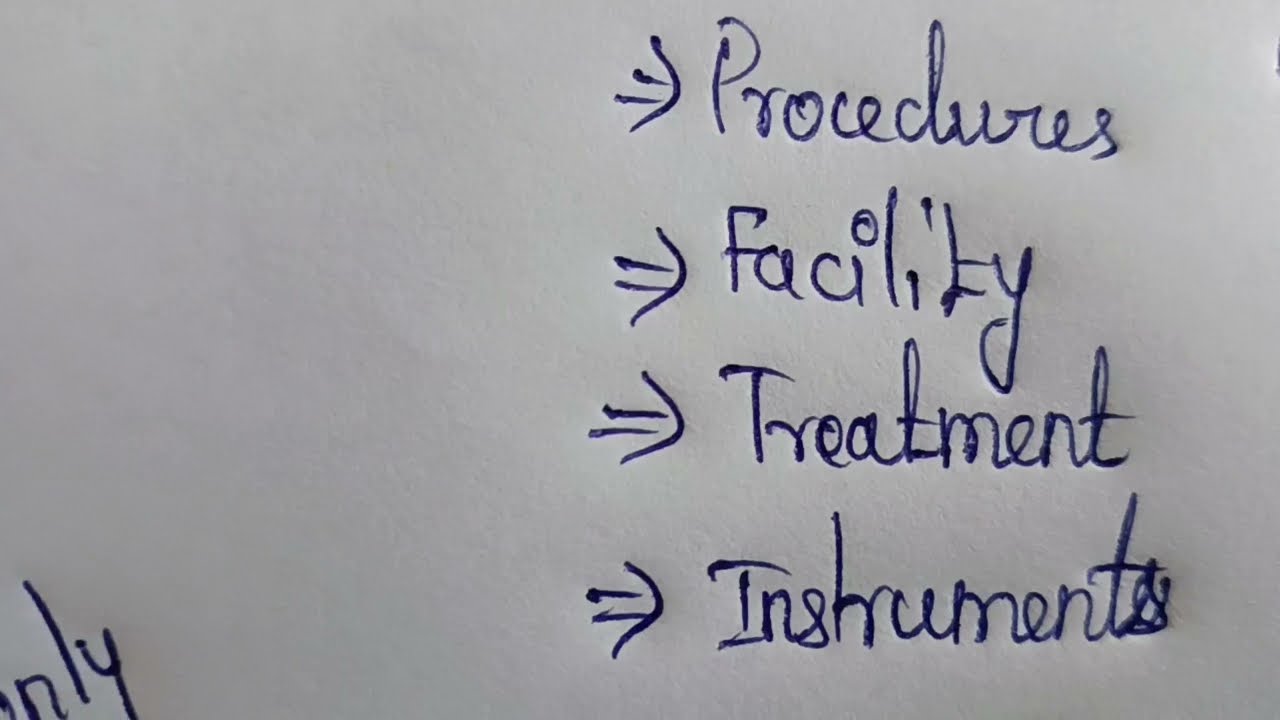 ⇒ Procedures
⇒ Facility
⇒ Treatment
⇒ Instruments
only